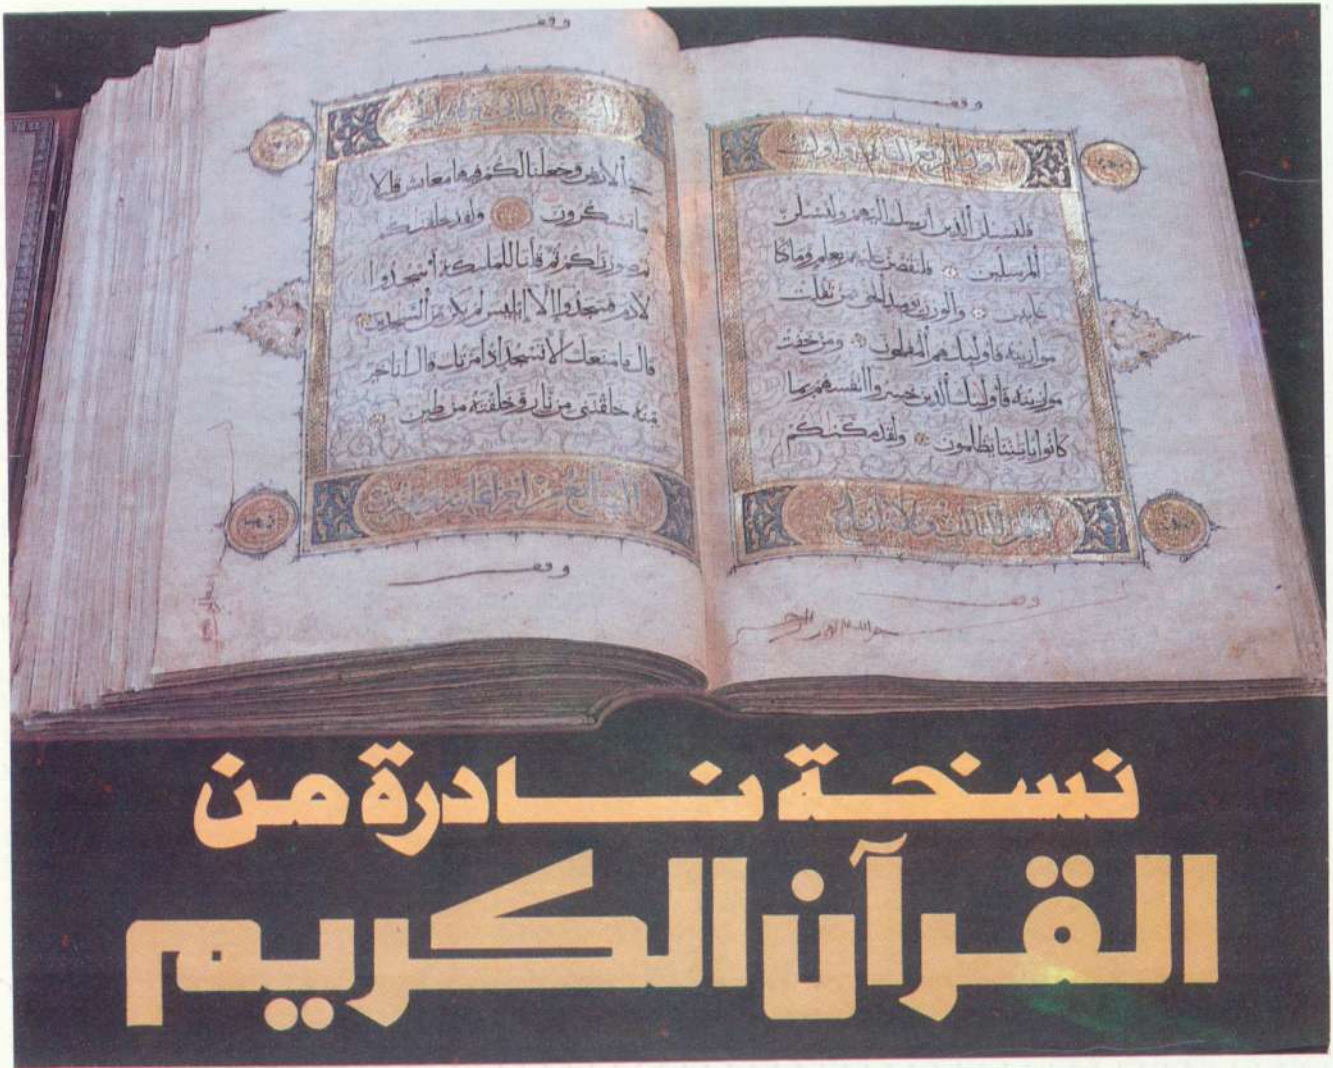 وقف
فلنسئلن ألذين أرسل اليهم ولنسئلن
ألمرسلين فلنقصن عليهم بعلم وما كنا
غايبين والوزن يوميذ الحق فمن ثقلت
موازينه فأوليك هم ألمفلحون ومن خفت
موازينه فأوليك ألذين خسروا أنفسهم بما
كانوا بايتنا يظلمون ولقد مكنكم
وقف
وقف
في ألارض وجعلنا لكم فيها معايش قليلا
ما تشكرون ولقد خلقنكم
ثم صورنكم ثم قلنا للمليكة أسجدوا
لادم فسجدوا إلا إبليس لم يكن من ألسجدين
قال ما منعك ألا تسجد إذ أمرتك قال أنا خير
منه خلقتني من نار وخلقته من طين
وقف
نسخة نادرة من
القرآن الكريم